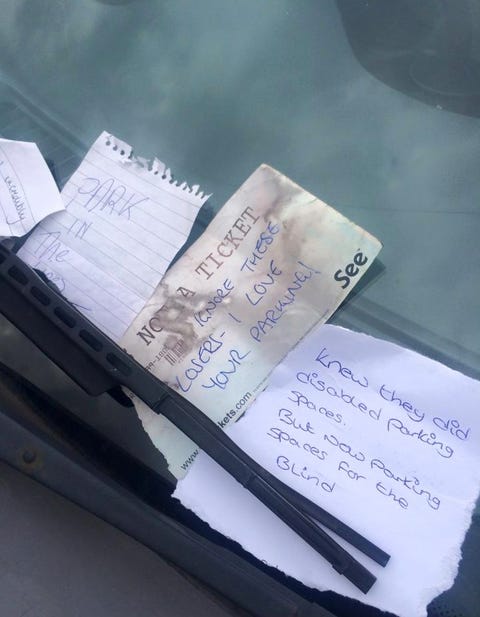 PARK
IN
THE
NOT A TICKET
IGNORE THESE
LOVERS- I LOVE
YOUR PARKING!
See
www
kets.com
Knew they did
disabled parking
spaces.
But now parking
spaces for the
Blind